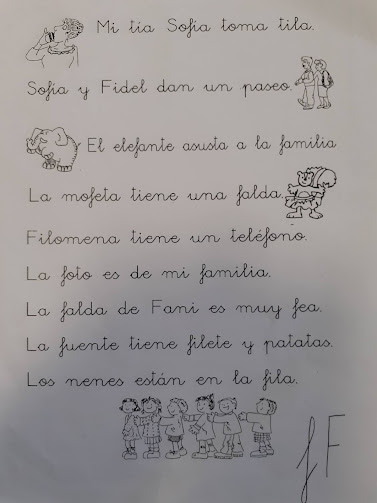 Mi tía Sofía toma tila.
Sofía y Fidel dan un paseo.
El elefante asusta a la familia
La mofeta tiene una falda.
Filomena tiene un teléfono.
La foto es de mi familia.
La falda de Fani es muy fea.
La fuente tiene filete y patatas.
Los nenes están en la fila.
f F